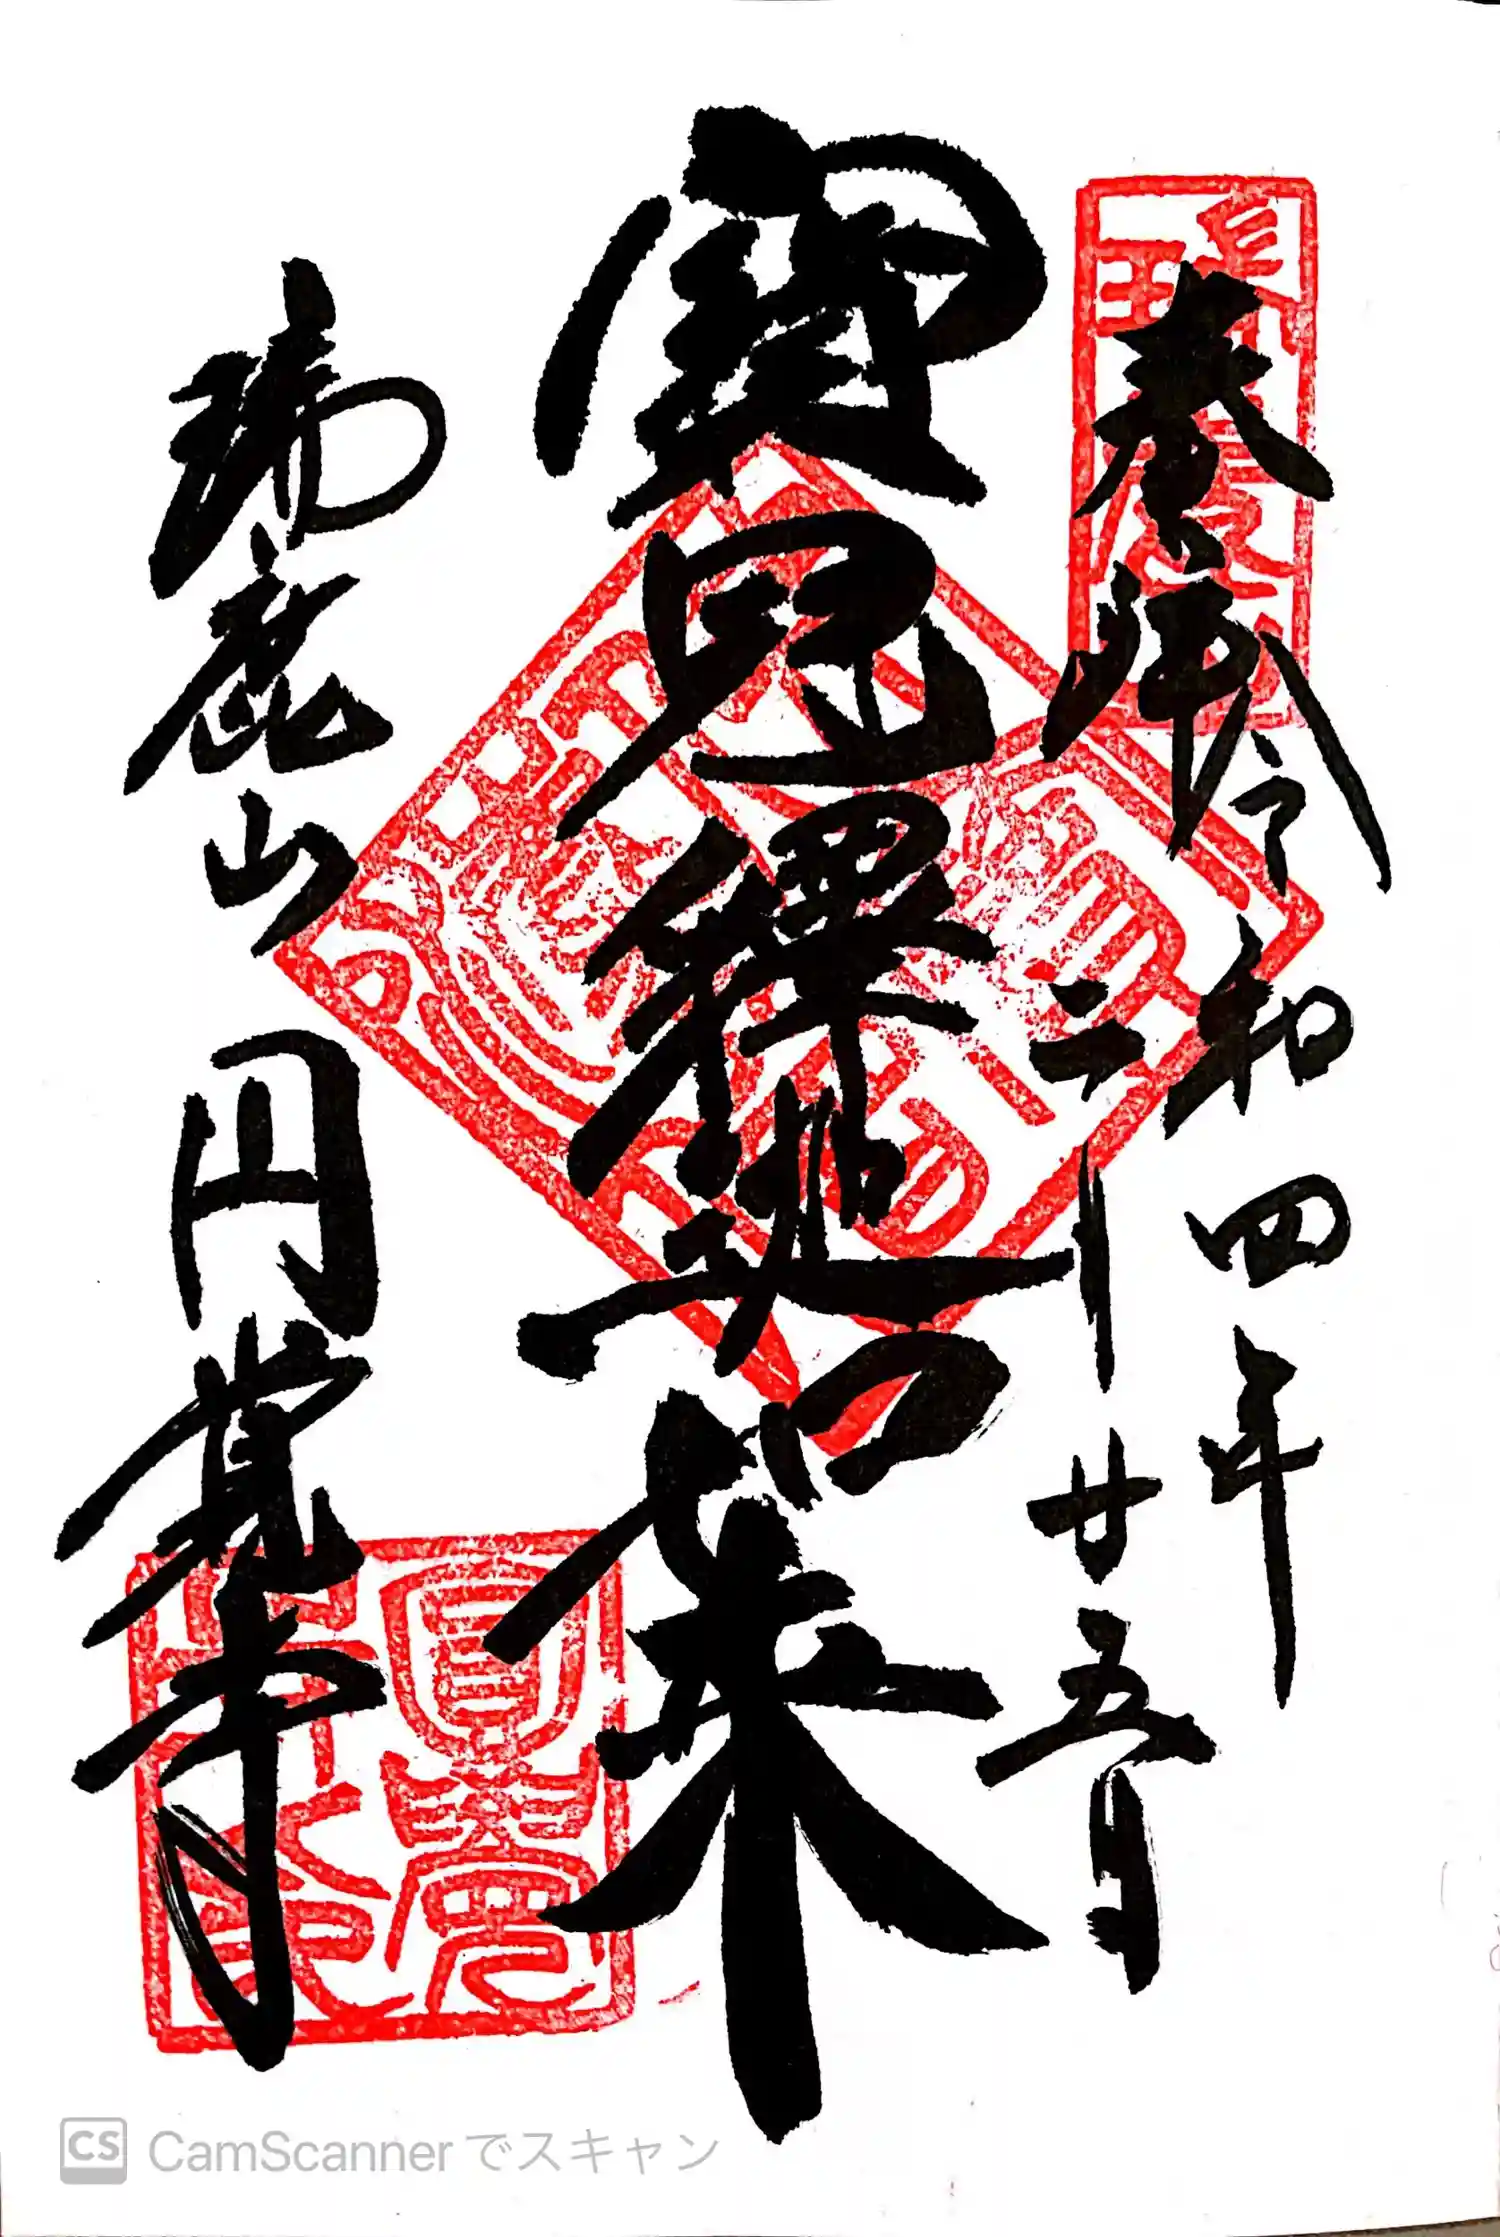 奉拝
令和四年
廿五日
寳冠釋迦如来
瑞鹿山
円覚寺
圓覺
CS CamScannerでスキャン